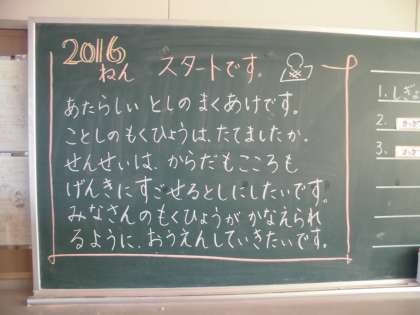 2016
ねん スタートです。
あたらしい としの まくあけです。
ことしの もくひょうは、たてましたか。
せんせいは、からだも こころも
げんきに すごせるとしにしたいです。
みなさんの もくひょうが かなえられ
るように、おうえんしていきたいです。
1. しぎょ
2.
3.